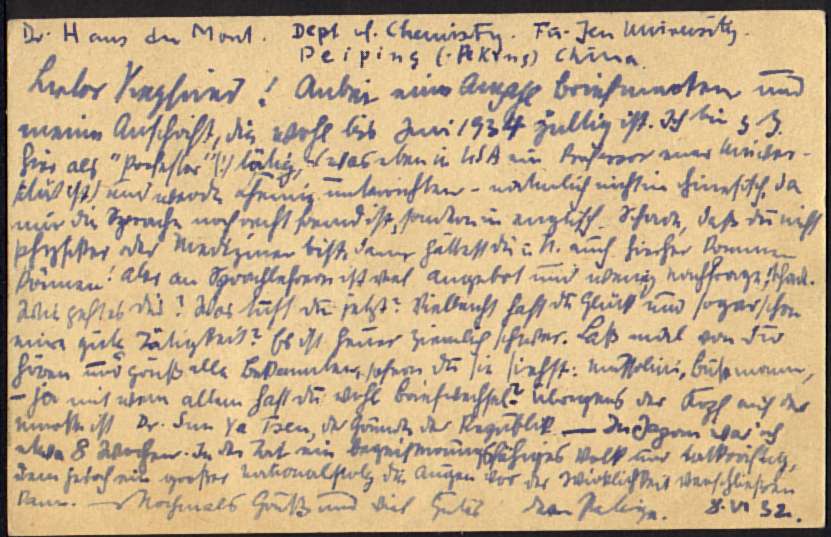 Dr. Hans du Mont. Dept. of Chemistry. Fu-Jen University.
Peiping (Peking) China.
Lieber Siegfried! Anbei eine Anzahl Briefmarken und
meine Anschrift, die wohl bis Juni 1934 gültig ist. Ich bin z. Z.
hier als "Professor" (!) tätig, (was eben in USA ein Professor einer Univer-
sität ist) und werde Chemie unterrichten - natürlich nicht in chinesisch, da
mir die Sprache noch recht fremd ist, sondern in englisch. Schade, daß du nicht
Physiker oder Mediziner bist, dann hättest du u. U. auch hierher kommen
können! Aber an Sprachlehrern ist viel Angebot und wenig Nachfrage, schade.
Wie geht es dir? Was tust du jetzt? Vielleicht hast du Glück und sogar schon
eine gute Tätigkeit? Es ist heuer ziemlich schwer. Laß mal von dir
hören und grüß alle Bekannten, sofern du sie siehst: Mussolini,
- ja mit wem allem hast du wohl Briefwechsel? Übrigens der Kopf auf der
Marke ist Dr. Sun Ya Tsen, der Gründer der Republik. — In Japan war ich
etwa 8 Wochen. In der Tat ein begeisterungsfähiges Volk und tatkräftig,
dem jedoch ein großer Nationalstolz die Augen vor der Wirklichkeit verschließen
kann. — Nochmals Gruß und viel Gutes dein 8. VI 32.